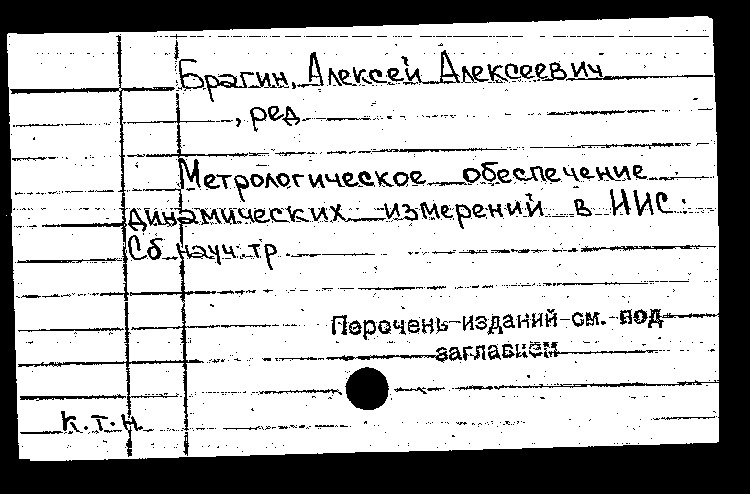 Брагин, Алексей Алексеевич
, ред
Метрологическое обеспечение
динамических измерений в ИИС.
Сб науч. тр
Перечень изданий см. под
заглавием
к.т.н.